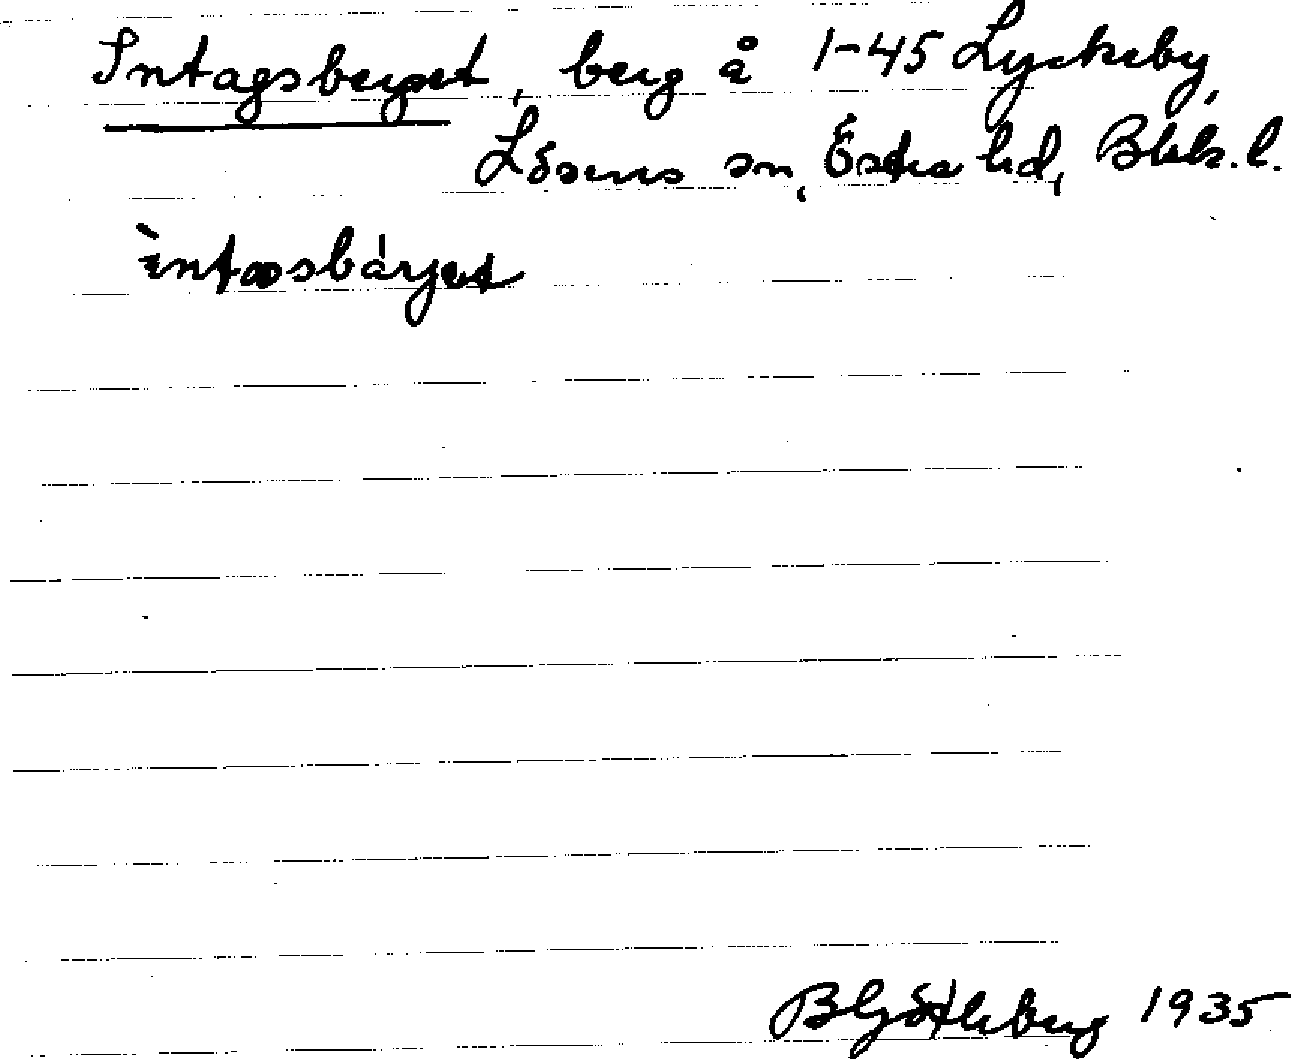 Intagsberget, berg å 1-45 Lyckeby,
Lösens sn, Östra hd, Blek. l.
intasbárjet
B Götleberg 1935